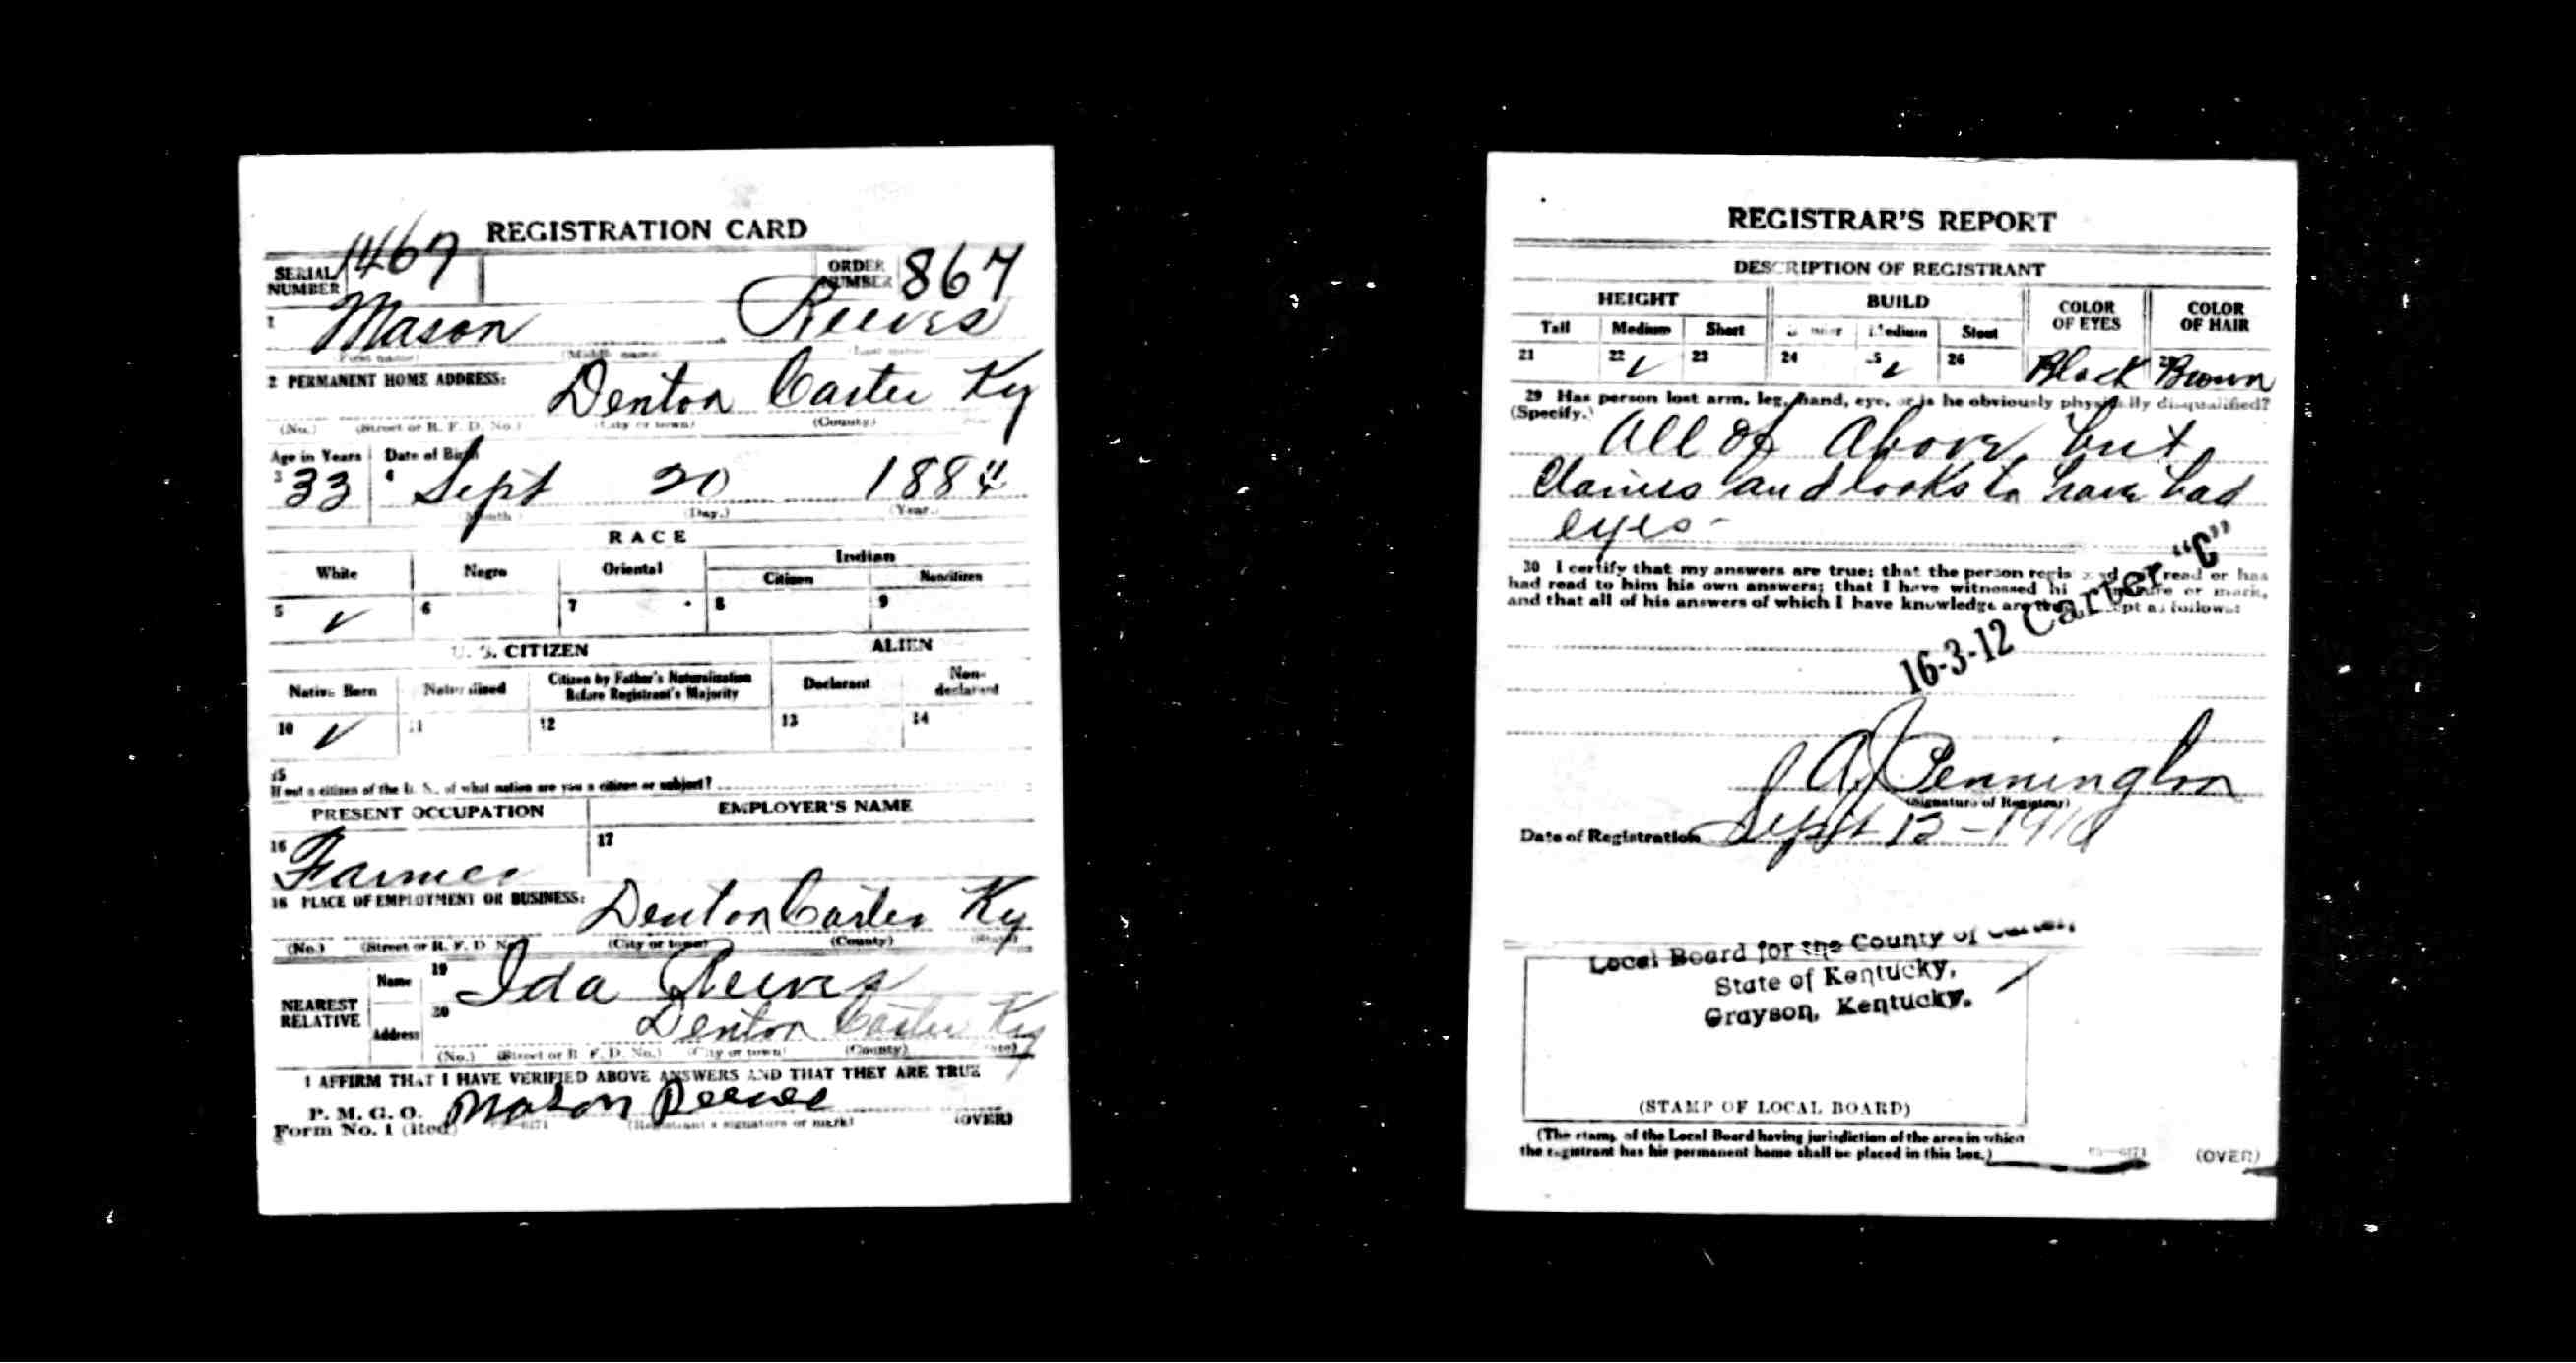 REGISTRATION CARD
SERIAL NUMBER 1467 ORDER NUMBER 867
1 Mason Reeves
(First name) (Middle name) (Last name)
2 PERMANENT HOME ADDRESS:
Denton Carter Ky
(No.) (Street or R. F. D. No.) (City or town) (County)
Age in Years Date of Birth
3 33 4 Sept 20 1884
(Month) (Day.) (Year.)
RACE
White Negro Oriental Indian
Citizen Noncitizen
5 ✓ 6 7 8 9
U. S. CITIZEN ALIEN
Native Born Naturalized Citizen by Father's Naturalization Before Registrant's Majority Declarant Non-declarant
10 ✓ 11 12 13 14
15
If not a citizen of the U. S., of what nation are you a citizen or subject?
PRESENT OCCUPATION EMPLOYER'S NAME
16 Farmer 17
18 PLACE OF EMPLOYMENT OR BUSINESS:
Denton Carter Ky
(No.) (Street or R. F. D. No.) (City or town) (County) (State)
NEAREST RELATIVE
Name 19 Ida Reeves
Address 20 Denton Carter Ky
(No.) (Street or R. F. D. No.) (City or town) (County) (State)
I AFFIRM THAT I HAVE VERIFIED ABOVE ANSWERS AND THAT THEY ARE TRUE
P. M. G. O.
Form No. 1 (Red) Mason Reeves
(Registrant's signature or mark) (OVER)
REGISTRAR'S REPORT
DESCRIPTION OF REGISTRANT
HEIGHT BUILD COLOR OF EYES COLOR OF HAIR
Tall Medium Short Slender Medium Stout
21 22 ✓ 23 24 25 ✓ 26 Black 28 Brown
29 Has person lost arm, leg, hand, eye, or is he obviously physically disqualified?
(Specify.)
All of above, but
Claims and looks to have bad
eyes-
30 I certify that my answers are true; that the person registered has read or has
had read to him his own answers; that I have witnessed his signature or mark,
and that all of his answers of which I have knowledge are true, except as follows:
16-3-12 Carter "C"
J A Pennington
(Signature of Registrar)
Date of Registration Sept 12-1918
Local Board for the County of Carter,
State of Kentucky,
Grayson, Kentucky.
(STAMP OF LOCAL BOARD)
(The stamp of the Local Board having jurisdiction of the area in which
the registrant has his permanent home shall be placed in this box.)
(OVER)